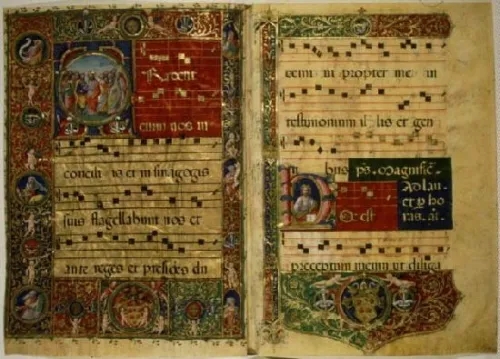 Tradent
enim nos in
concili is et in sinagogis
suis flagellabunt nos et
ante reges et presides du
cemini propter me in
testimonium il lis et gen
ti bus ps. Magnific.
Ad lau.
et p ho
Hoc est ras. an.
preceptum meum ut diliga